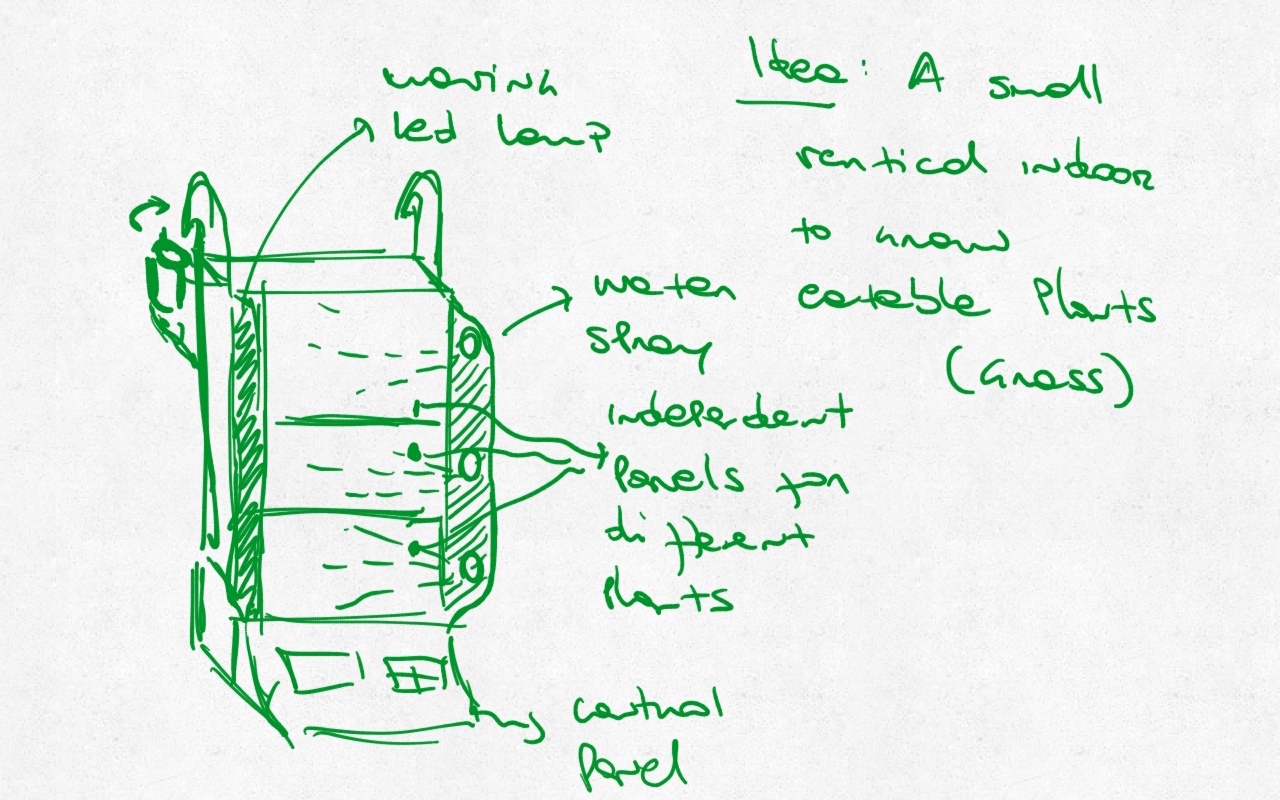 moving
led lamp
Idea: A small
vertical indoor
to grow
eatable plants
(Grass)
water
spray
independent
panels for
different
plants
control
panel